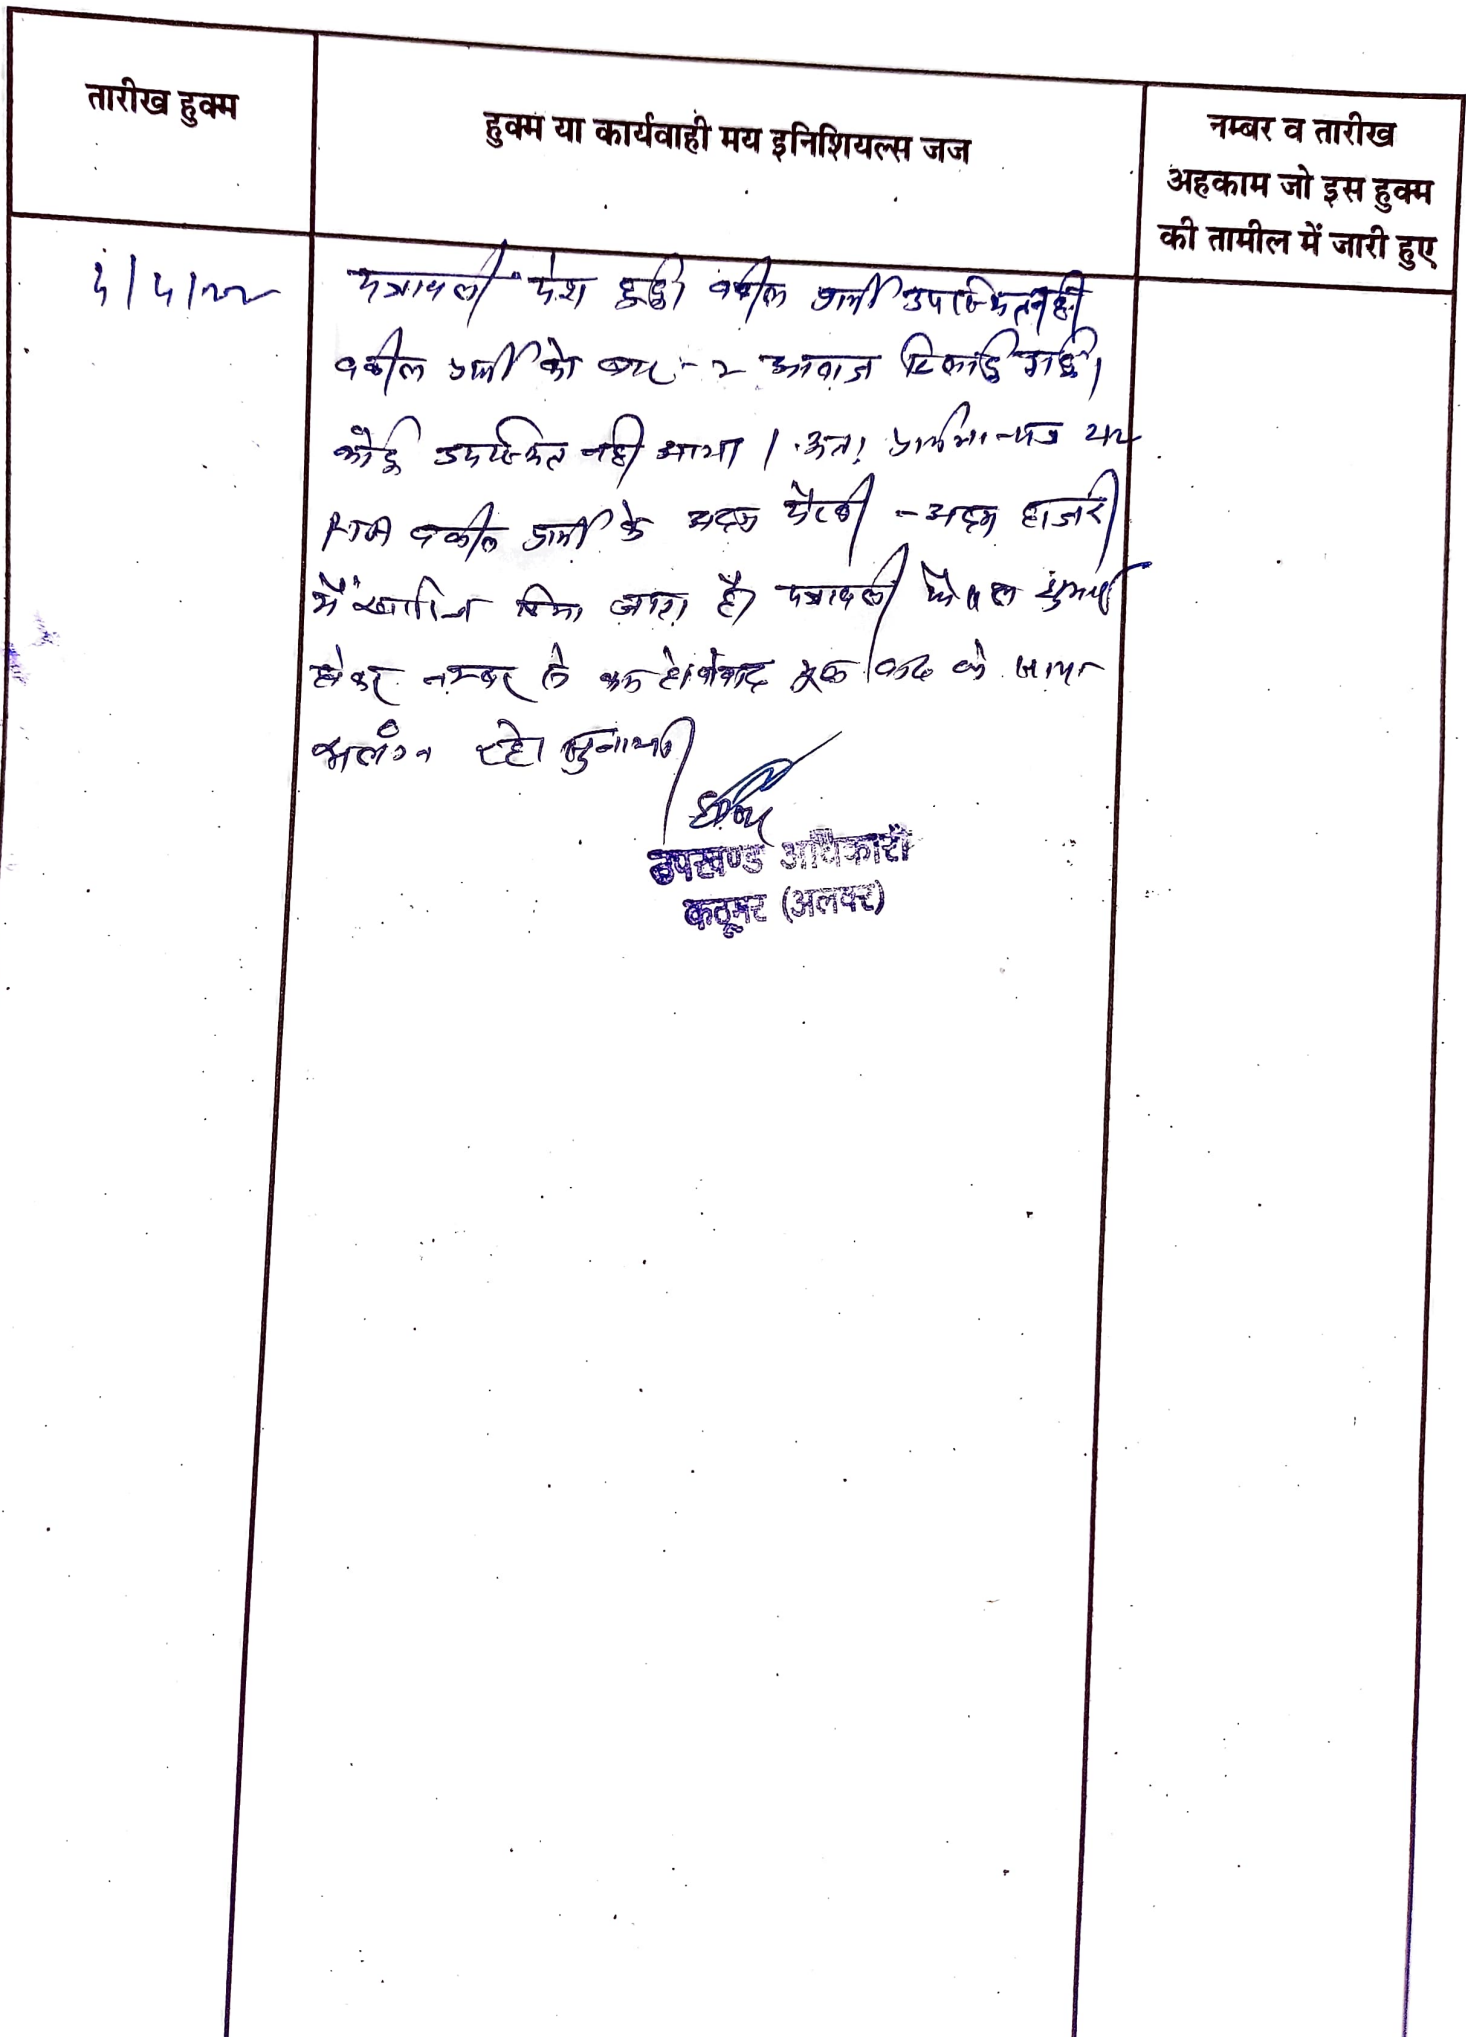 तारीख हुक्म
हुक्म या कार्यवाही मय इनिशियल्स जज
नम्बर व तारीख
अहकाम जो इस हुक्म
की तामील में जारी हुए
पत्रावली पेश हुई। वकील प्रार्थी उपस्थित नही
वकील प्रार्थी को बार-2 आवाज दिलाई गई।
कोई उपस्थित नही आया। अतः प्रार्थना-पत्र
RTA वकील प्रार्थी के अदम पैरवी - अदम हाजरी
में खारिज किया जाता है। पत्रावली फैसल शुमार
होकर नम्बर से कम हो। बाद मूल वाद के साथ
संलग्न रहे। सुनाया
उपखण्ड अधिकारी
कठूमर (अलवर)